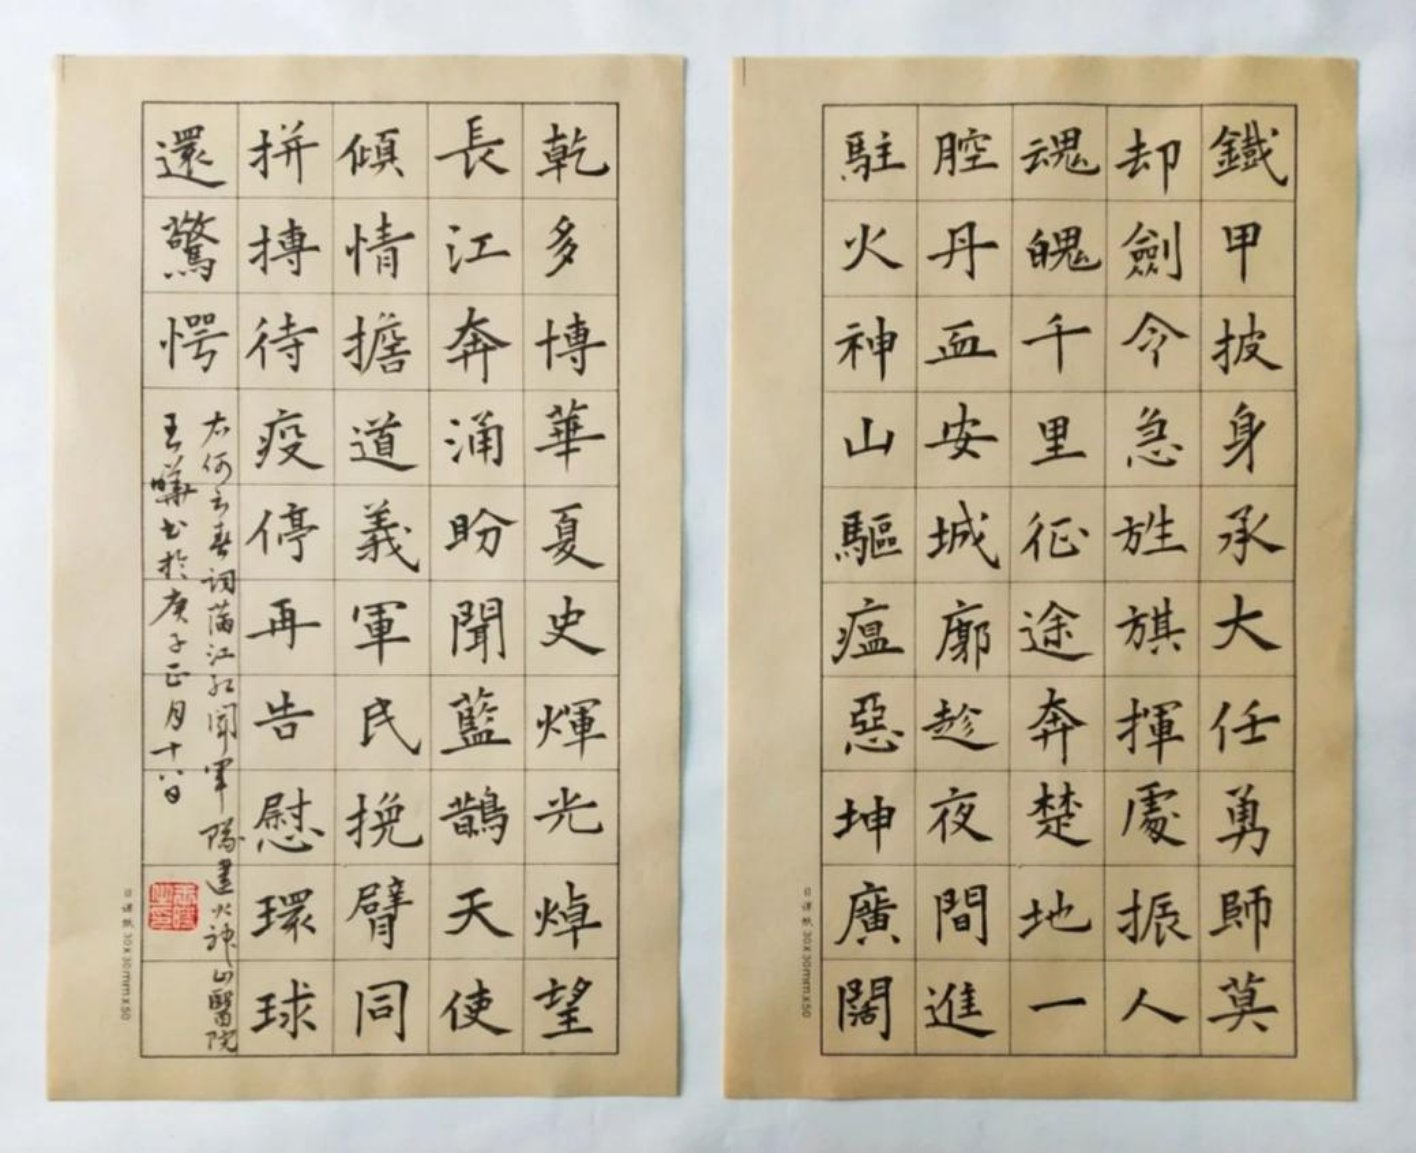 鐵甲披身承大任勇師莫
却劍令急旌旗揮處振人
魂魄千里征途奔楚地一
腔丹血安城廓趁夜間進
駐火神山驅瘟惡坤廣闊
日课纸 30×30mm×50
乾多博華夏史煇光焯望
長江奔涌盼聞藍鵲天使
傾情擔道義軍民挽臂同
拼搏待疫停再告慰環球
還驚愕
右何云春词满江红闻军隊建火神山醫院
王曦书於庚子正月十八日
日课纸 30×30mm×50